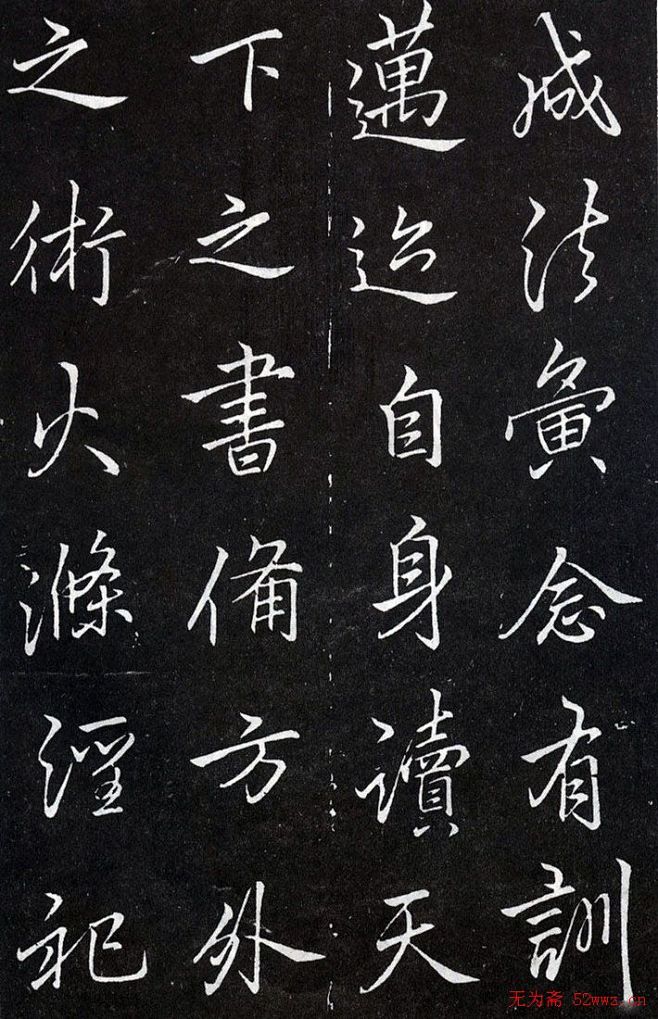 咸法夤念有訓
邁迹自身讀天
下之書備方外
之術火滌淫祀
无为斋 52wwz.cn